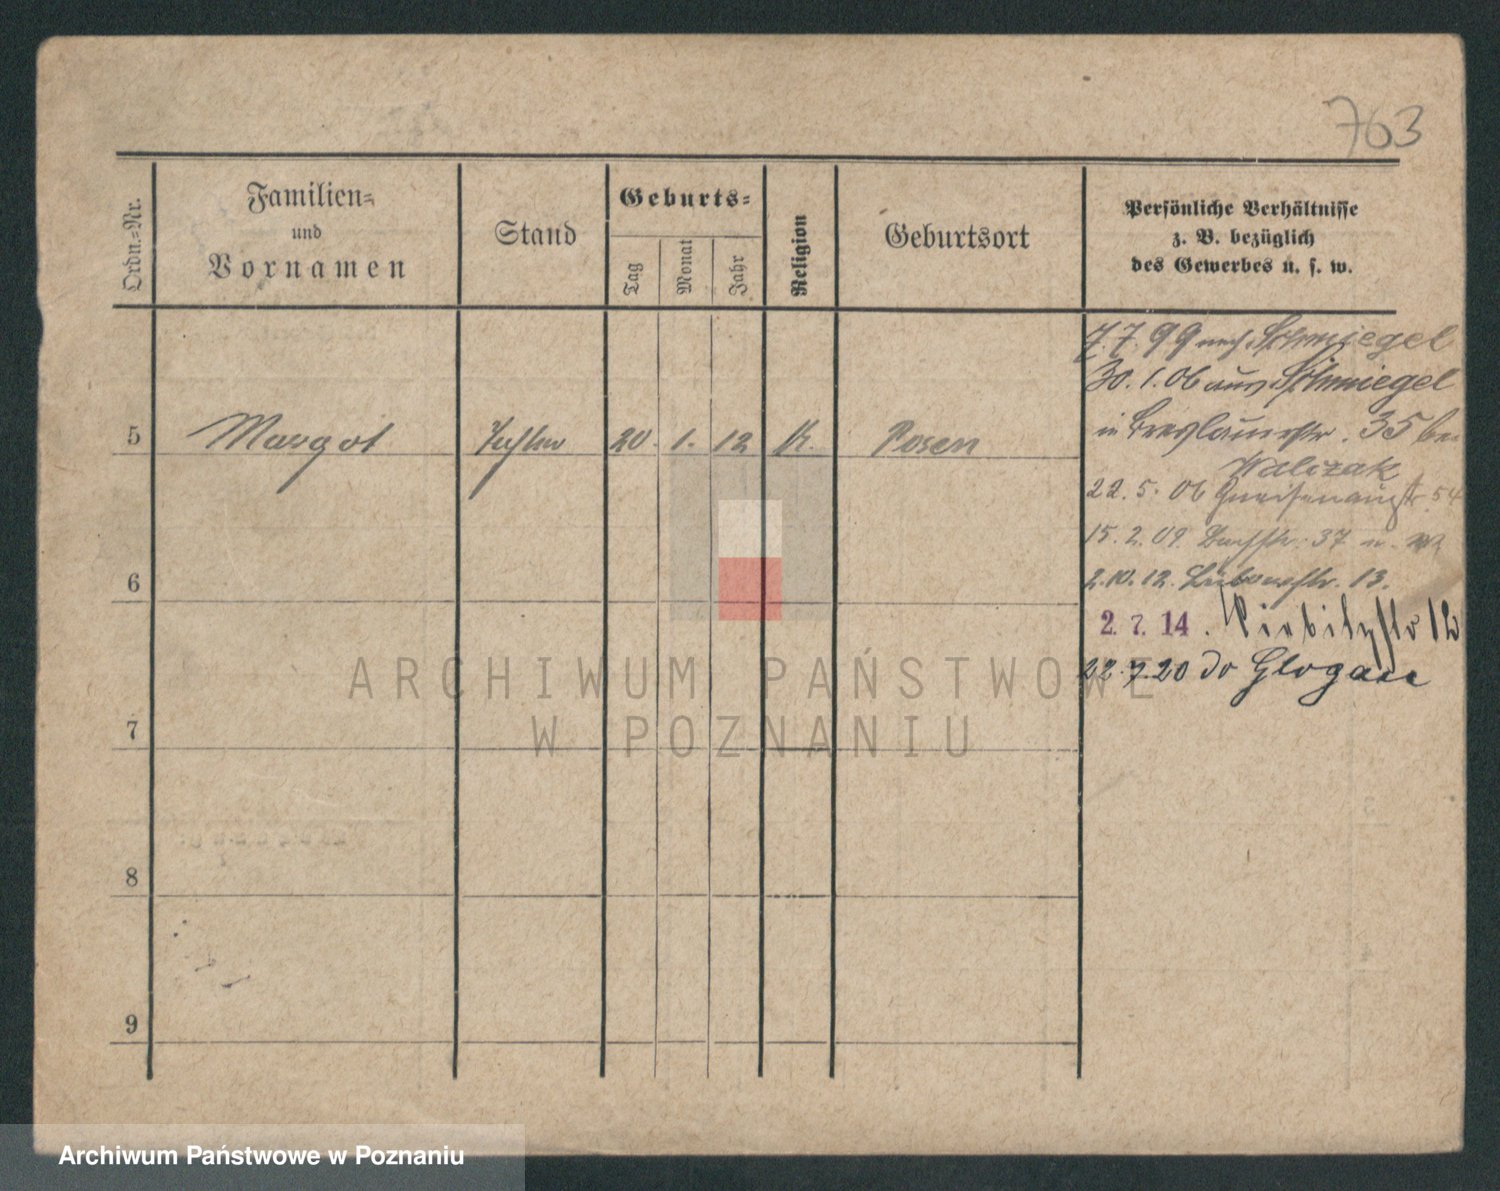 763
Ordn.-Nr.
Familien-
und
Vornamen
Stand
Geburts-
Tag
Monat
Jahr
Religion
Geburtsort
Persönliche Verhältnisse
z. B. bezüglich
des Gewerbes u. s. w.
7. 7. 99 nach Schmiegel
30. 1. 06 aus Schmiegel
in Breslauerstr. 35 bei
Walczak
5 Margot Tochter 20. 1. 12 K. Posen
22. 5. 06 Gneisenaustr. 54
15. 2. 09. Bachstr. 37
6
2. 10. 12. 13.
2. 7. 14. 12
22. 7. 20 do Glogau
7
8
9
ARCHIWUM PAŃSTWOWE
W POZNANIU
Archiwum Państwowe w Poznaniu